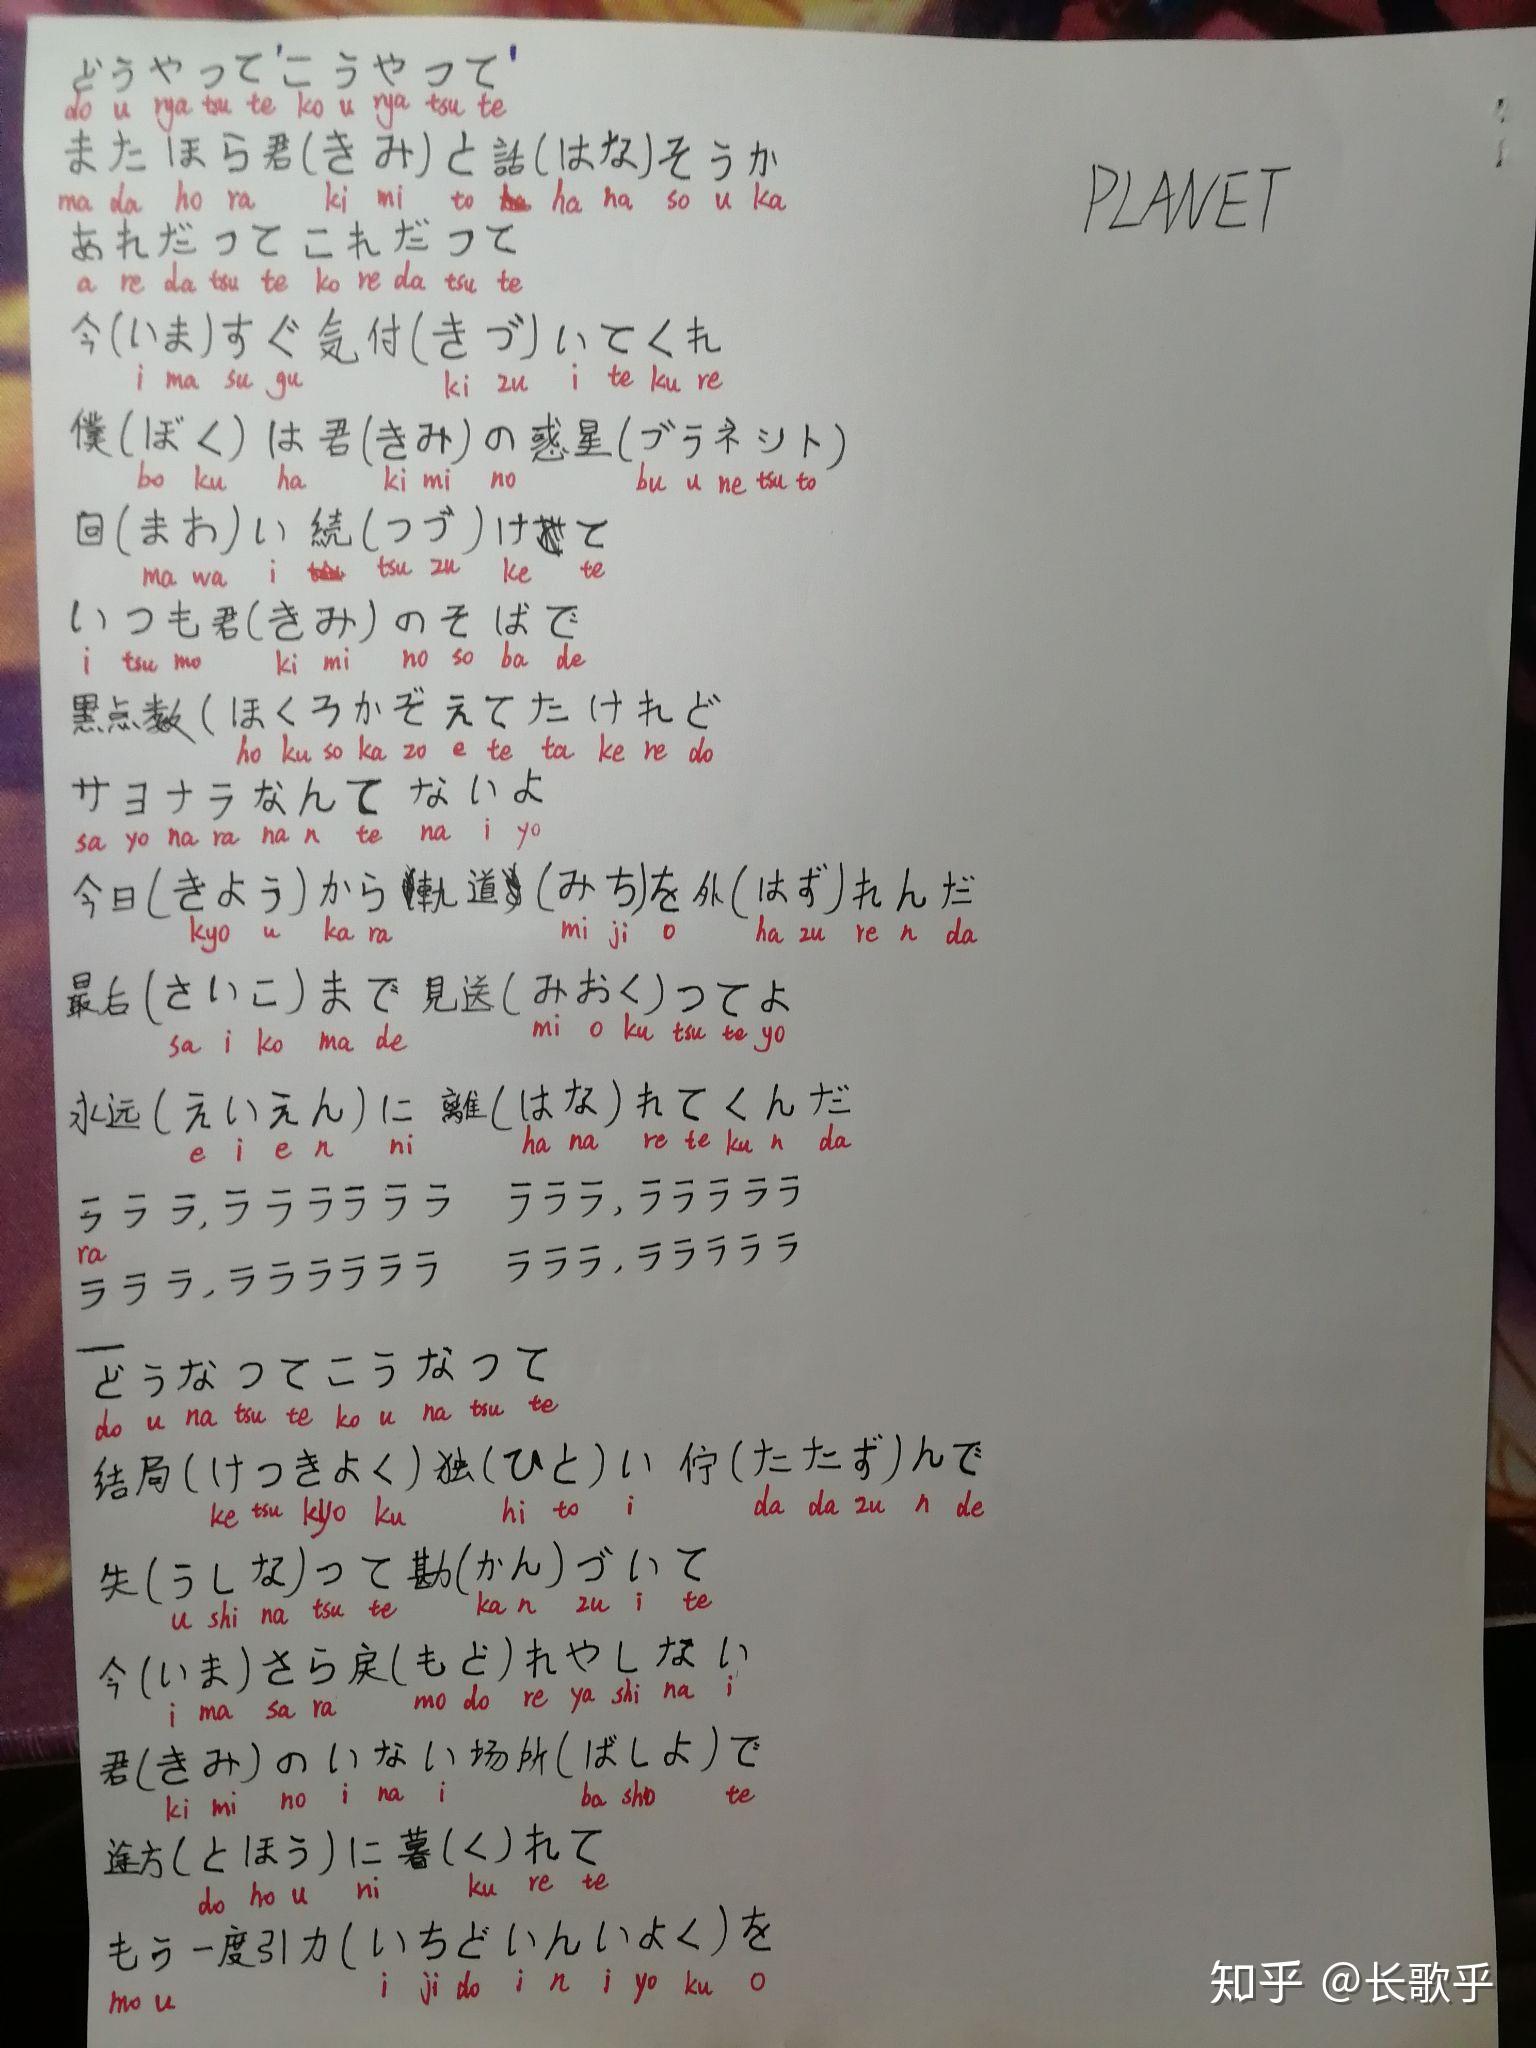 どうやって'こうやって'
do u rya tsu te ko u rya tsu te
またほら君(きみ)と話(はな)そうか
ma da ho ra ki mi to ha na so u ka
PLANET
あれだってこれだって
a re da tsu te ko re da tsu te
今(いま)すぐ気付(きづ)いてくれ
i ma su gu ki zu i te ku re
僕(ぼく)は君(きみ)の惑星(プラネット)
bo ku ha ki mi no bu u ne tsu to
回(まわ)い続(つづ)けて
ma wa i tsu zu ke te
いつも君(きみ)のそばで
i tsu mo ki mi no so ba de
黒点数(ほくろかぞえてたけれど
ho ku so ka zo e te ta ke re do
サヨナラなんてないよ
sa yo na ra na n te na i yo
今日(きょう)から軌道(みち)を外(はず)れんだ
kyo u ka ra mi ji o ha zu re n da
最后(さいこ)まで見送(みおく)ってよ
sa i ko ma de mi o ku tsu te yo
永远(えいえん)に離(はな)れてくんだ
e i e n ni ha na re te ku n da
ラララ,ララララララ ラララ,ラララララ
ra
ラララ,ララララララ ラララ,ラララララ
どうなってこうなって
do u na tsu te ko u na tsu te
结局(けっきょく)独(ひと)い佇(たたず)んで
ke tsu kyo ku hi to i da da zu n de
失(うしな)って勘(かん)づいて
u shi na tsu te ka n zu i te
今(いま)さら戻(もど)れやしない
i ma sa ra mo do re ya shi na i
君(きみ)のいない场所(ばしょ)で
ki mi no i na i ba sho te
途方(とほう)に暮(く)れて
do ho u ni ku re te
もう一度引力(いちどいんいよく)を
mo u i ji do i n i yo ku o
知乎 @长歌乎